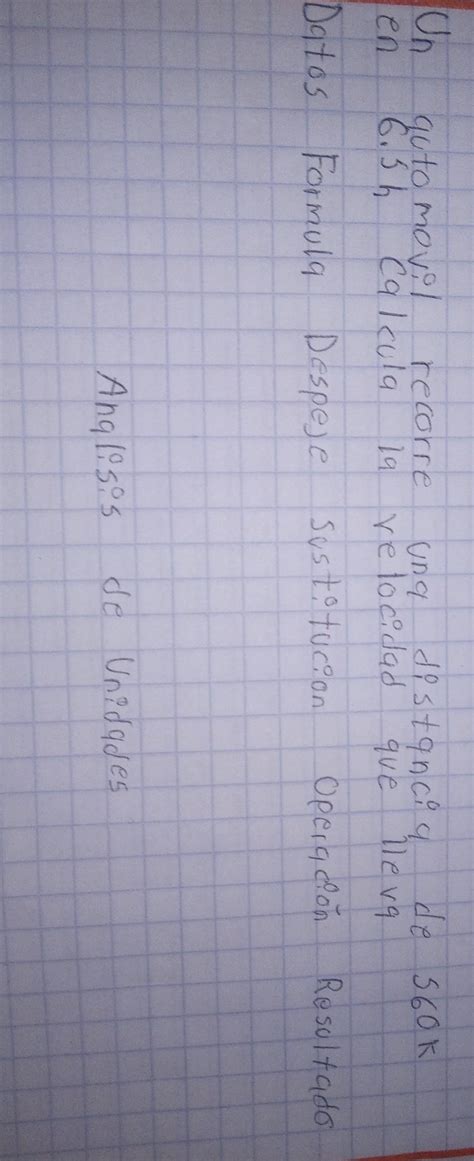 Un automovil recorre una distancia de 560k
en 6.5h Calcula la velocidad que lleva
Datos Formula Despeje Sustitucion Operación Resultado
Analisis de Unidades